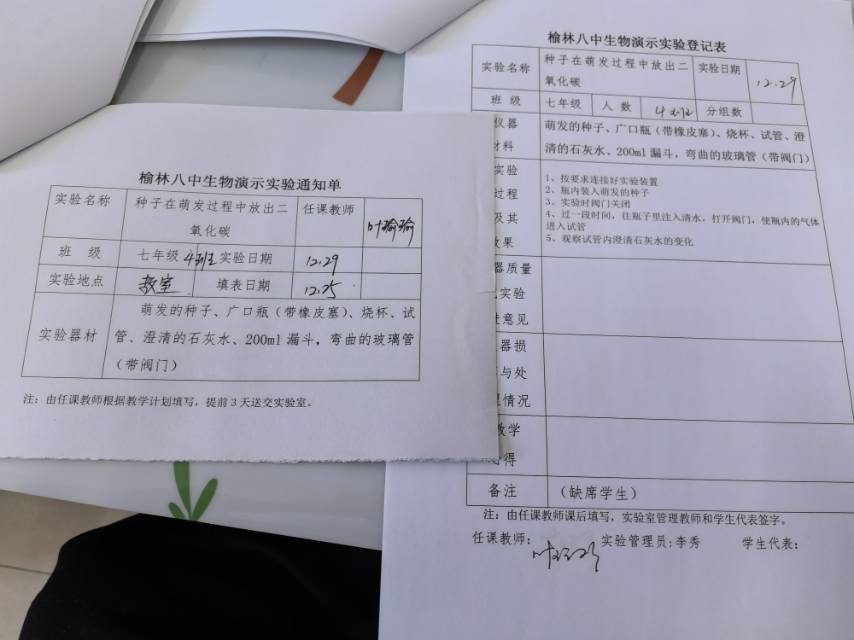 榆林八中生物演示实验通知单
实验名称 种子在萌发过程中放出二氧化碳 任课教师 叶瑜瑜
班 级 七年级 4班 实验日期 12.29
实验地点 教室 填表日期 12.25
实验器材 萌发的种子、广口瓶（带橡皮塞）、烧杯、试
管、澄清的石灰水、200ml 漏斗，弯曲的玻璃管
（带阀门）
注：由任课教师根据教学计划填写，提前 3 天送交实验室。
榆林八中生物演示实验登记表
实验名称 种子在萌发过程中放出二氧化碳 实验日期 12.29
班 级 七年级 人 数 分组数
仪器
材料
萌发的种子、广口瓶（带橡皮塞）、烧杯、试管、澄
清的石灰水、200ml 漏斗，弯曲的玻璃管（带阀门）
实验
过程
及其
效果
1、按要求连接好实验装置
2、瓶内装入萌发的种子
3、实验时阀门关闭
4、过一段时间，往瓶子里注入清水，打开阀门，使瓶内的气体
进入试管
5、观察试管内澄清石灰水的变化
器质量
实验
意见
器损
与处
情况
教学
得
备注 （缺席学生）
注：由任课教师课后填写，实验室管理教师和学生代表签字。
任课教师： 实验管理员：李秀 学生代表：